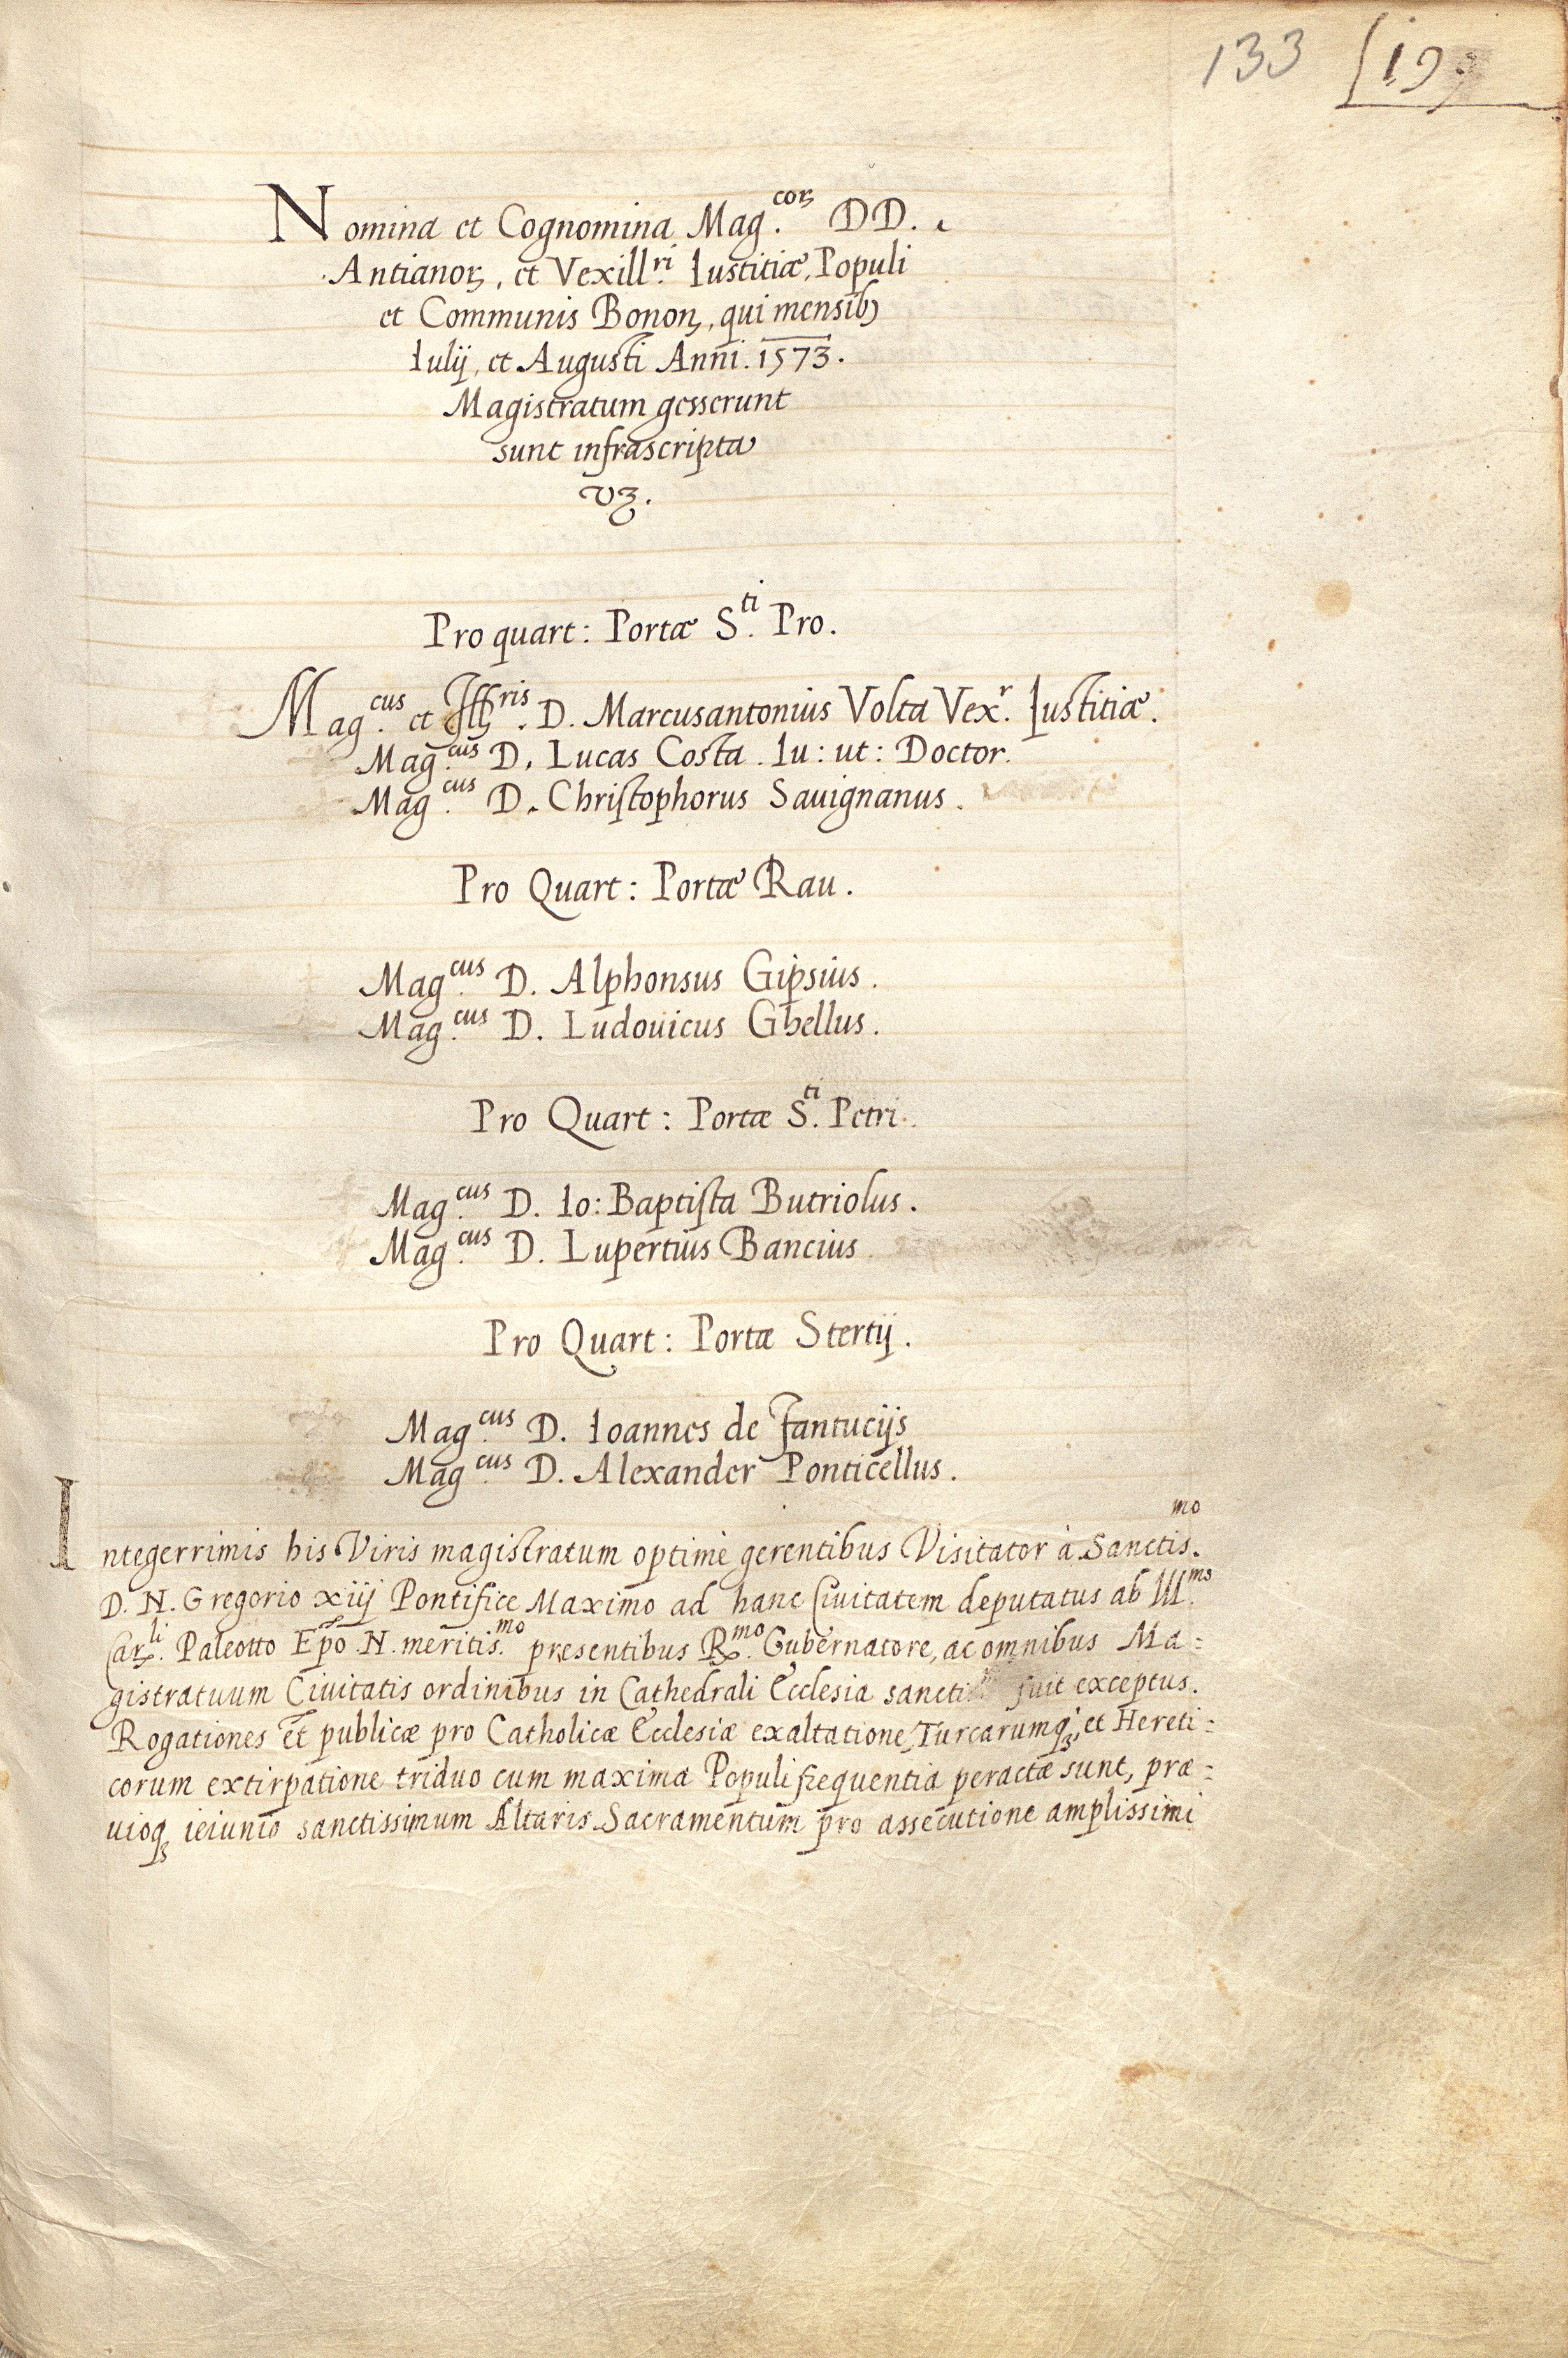 133 19
Nomina et Cognomina Mag.coꝝ DD.
Antianoꝝ, et Vexill.ri Iustitiæ, Populi
et Communis Bonon, qui mensibꝫ
Iulij, et Augusti Anni. 1573.
Magistratum gesserunt
sunt infrascripta
vꝫ.
Pro quart: Portæ S.ti Pro.
Mag.cus et Ill.ris D. Marcusantonius Volta Vex.r Iustitiæ.
Mag.cus D. Lucas Costa. Iu: ut: Doctor.
Mag.cus D. Christophorus Sauignanus.
Pro Quart: Portæ Rau.
Mag.cus D. Alphonsus Gipsius.
Mag.cus D. Ludouicus Ghellus.
Pro Quart: Portæ S.ti Petri.
Mag.cus D. Io: Baptista Butriolus.
Mag.cus D. Lupertius Bancius
Pro Quart: Portæ Sterij.
Mag.cus D. Ioannes de Fantucijs
Mag.cus D. Alexander Ponticellus.
Integerrimis his Viris magistratum optimè gerentibus Visitator à Sanctis.mo
D. N. Gregorio xiij Pontifice Maximo ad hanc Ciuitatem deputatus ab Ill.mo
Car.li Paleotto Epo N. meritis.mo presentibus R.mo Gubernatore, ac omnibus Ma=
gistratuum Ciuitatis ordinibus in Cathedrali Ecclesia fuit exceptus.
Rogationes et publicæ pro Catholicæ Ecclesiæ exaltatione, Turcarumqꝫ, et Hereti=
corum extirpatione triduo cum maxima Populi frequentia peractæ sunt, præ=
uioqꝫ ieiunio sanctissimum Altaris Sacramentum pro assecutione amplissimi